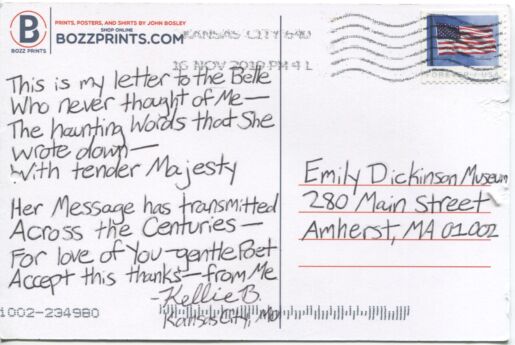 PRINTS, POSTERS, AND SHIRTS BY JOHN BOSLEY
SHOP ONLINE
BOZZPRINTS.COM
BOZZ PRINTS
KANSAS CITY 640
16 NOV 2019 PM 4 L
FOREVER USA
This is my letter to the Belle
Who never thought of Me—
The haunting Words that She
wrote down—
With tender Majesty
Her Message has transmitted
Across the Centuries—
For love of You—gentle Poet
Accept this thanks—from Me
-Kellie B.
Kansas City, Mo
Emily Dickinson Museum
280 Main Street
Amherst, MA 01002
1002-234980